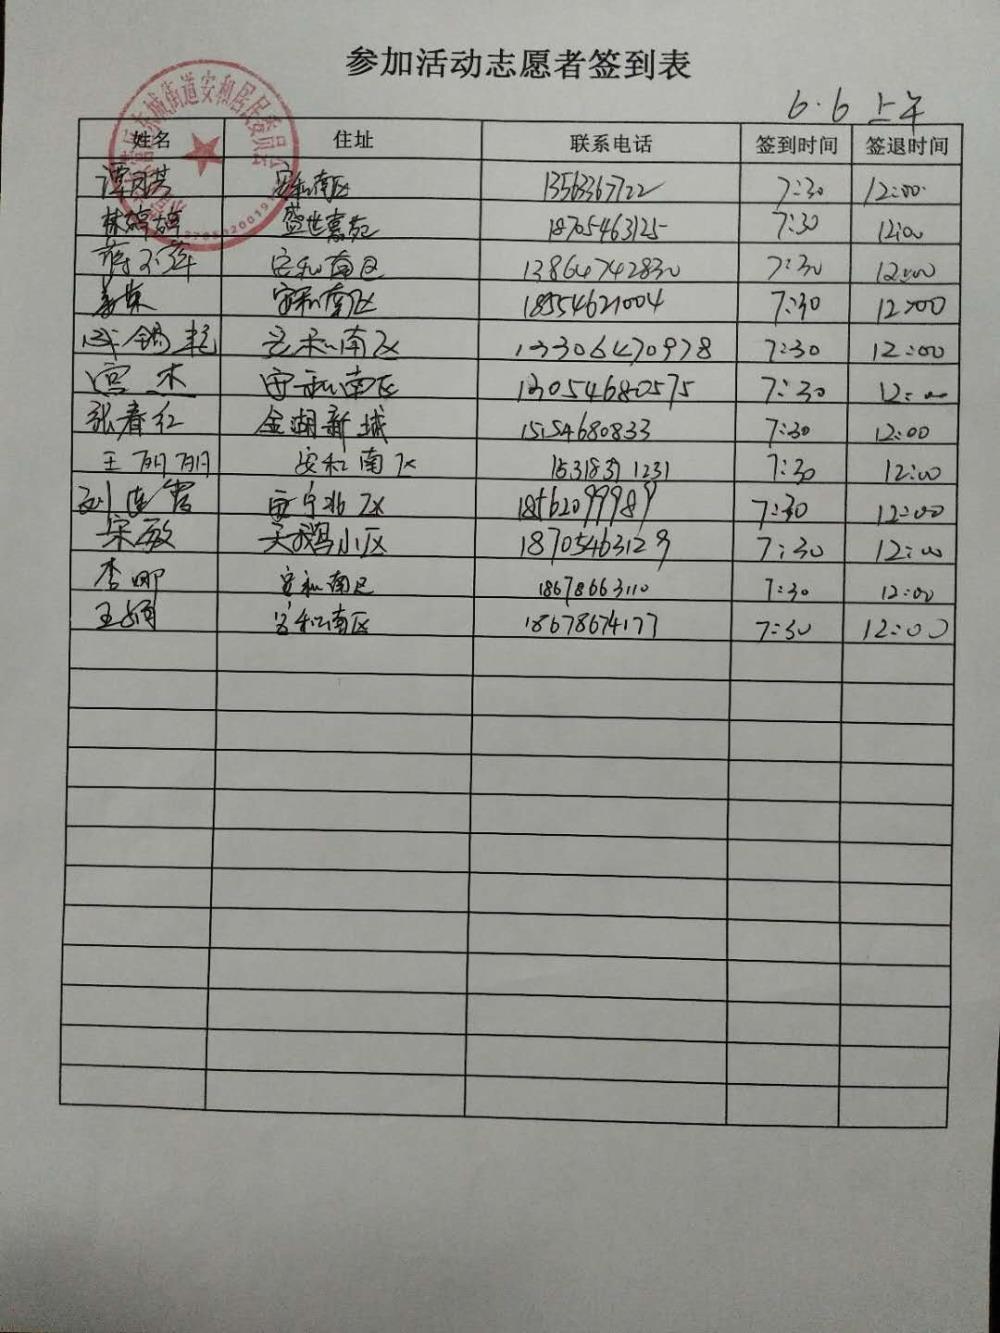 参加活动志愿者签到表
6.6 上午
姓名 住址 联系电话 签到时间 签退时间
安和南区 13563367722 7:30 12:00
林婷婷 盛世嘉苑 18705463125 7:30 12:00
安和南区 13864742830 7:30 12:00
安和南区 18554621004 7:30 12:00
安和南区 13306470978 7:30 12:00
宫杰 安和南区 13054680575 7:30 12:00
张春红 金湖新城 15154680833 7:30 12:00
王丽丽 安和南区 15318371231 7:30 12:00
安宁北区 18562099989 7:30 12:00
宋敏 天鹅小区 18705463129 7:30 12:00
李娜 安和南区 18678663110 7:30 12:00
王娟 安和南区 18678674177 7:30 12:00